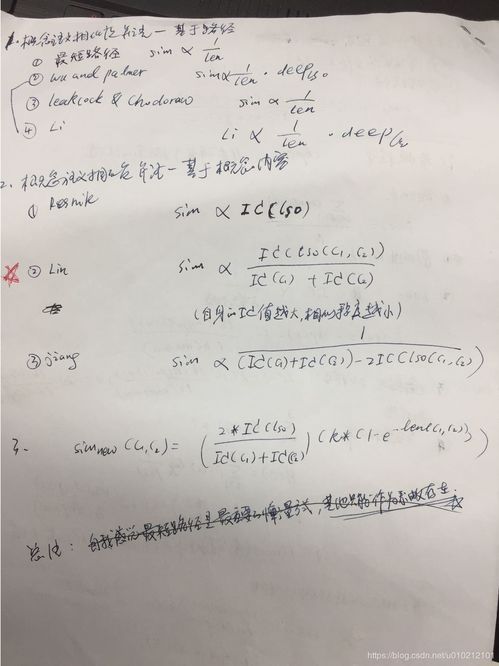 1. 概念语义相似度算法－基于路径
① 最短路径 sim ∝ 1/len
② wu and palmer sim ∝ 1/len · deeplso
③ leakcock & Chodorow sim ∝ 1/len
④ Li Li ∝ 1/len · deep
2. 概念语义相似度算法－基于概念内容
① Resnik sim ∝ IC(lso)
② Lin sim ∝ IC(lso(C1, C2)) / IC(C1) + IC(C2)
(自身的IC值越大,相似程度越小)
③ jiang sim ∝ 1 / (IC(C1)+IC(C2))-2IC(lso(C1,C2))
3. simnew (C1,C2) = (2*IC(lso) / IC(C1)+IC(C2)) (k*(1-e^-len(C1,C2)))
总结: 自我感觉最短路径是最重要的衡量方式,其他只能作为系数存在.
https://blog.csdn.net/u010212101